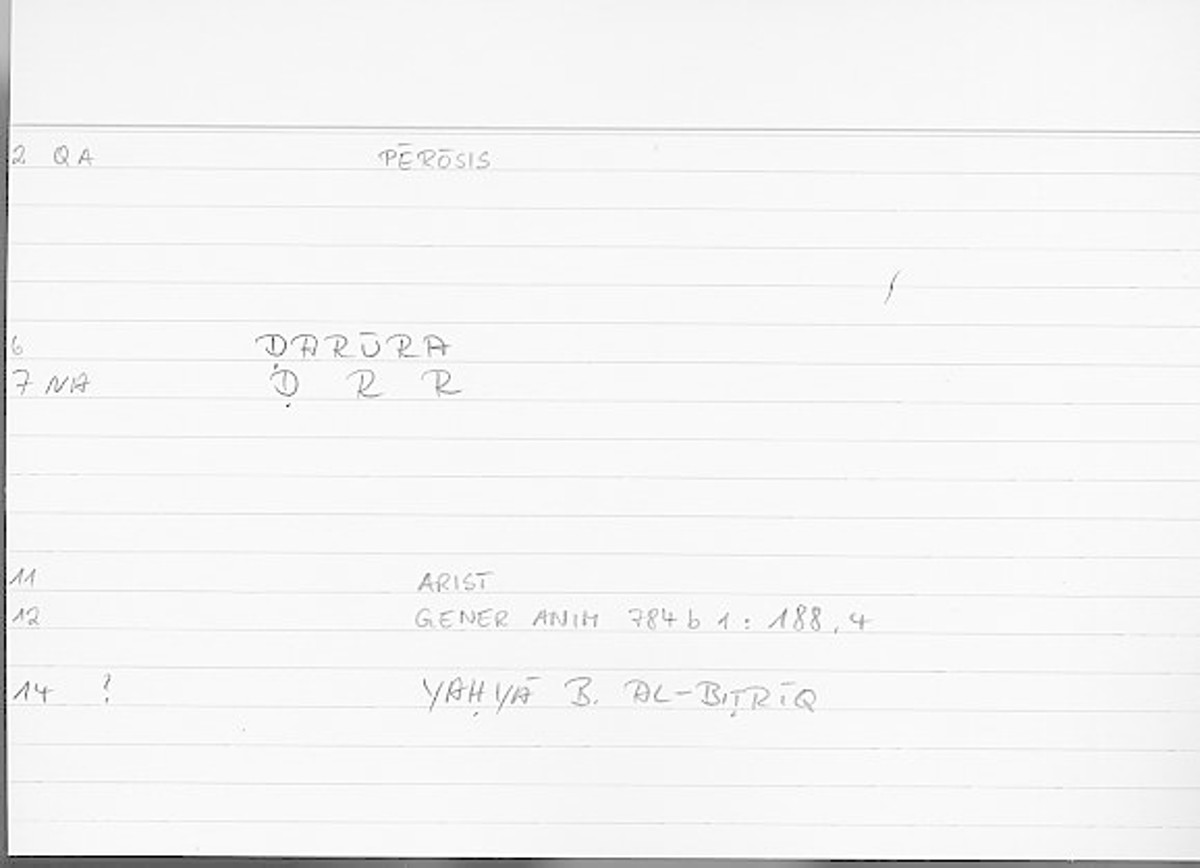 2 QA PĒRŌSIS
6 ḌARŪRA
7 NA Ḍ R R
11 ARIST
12 GENER ANIM 784 b 1 : 188, 4
14 ? YAḤYĀ B. AL-BIṬRĪQ